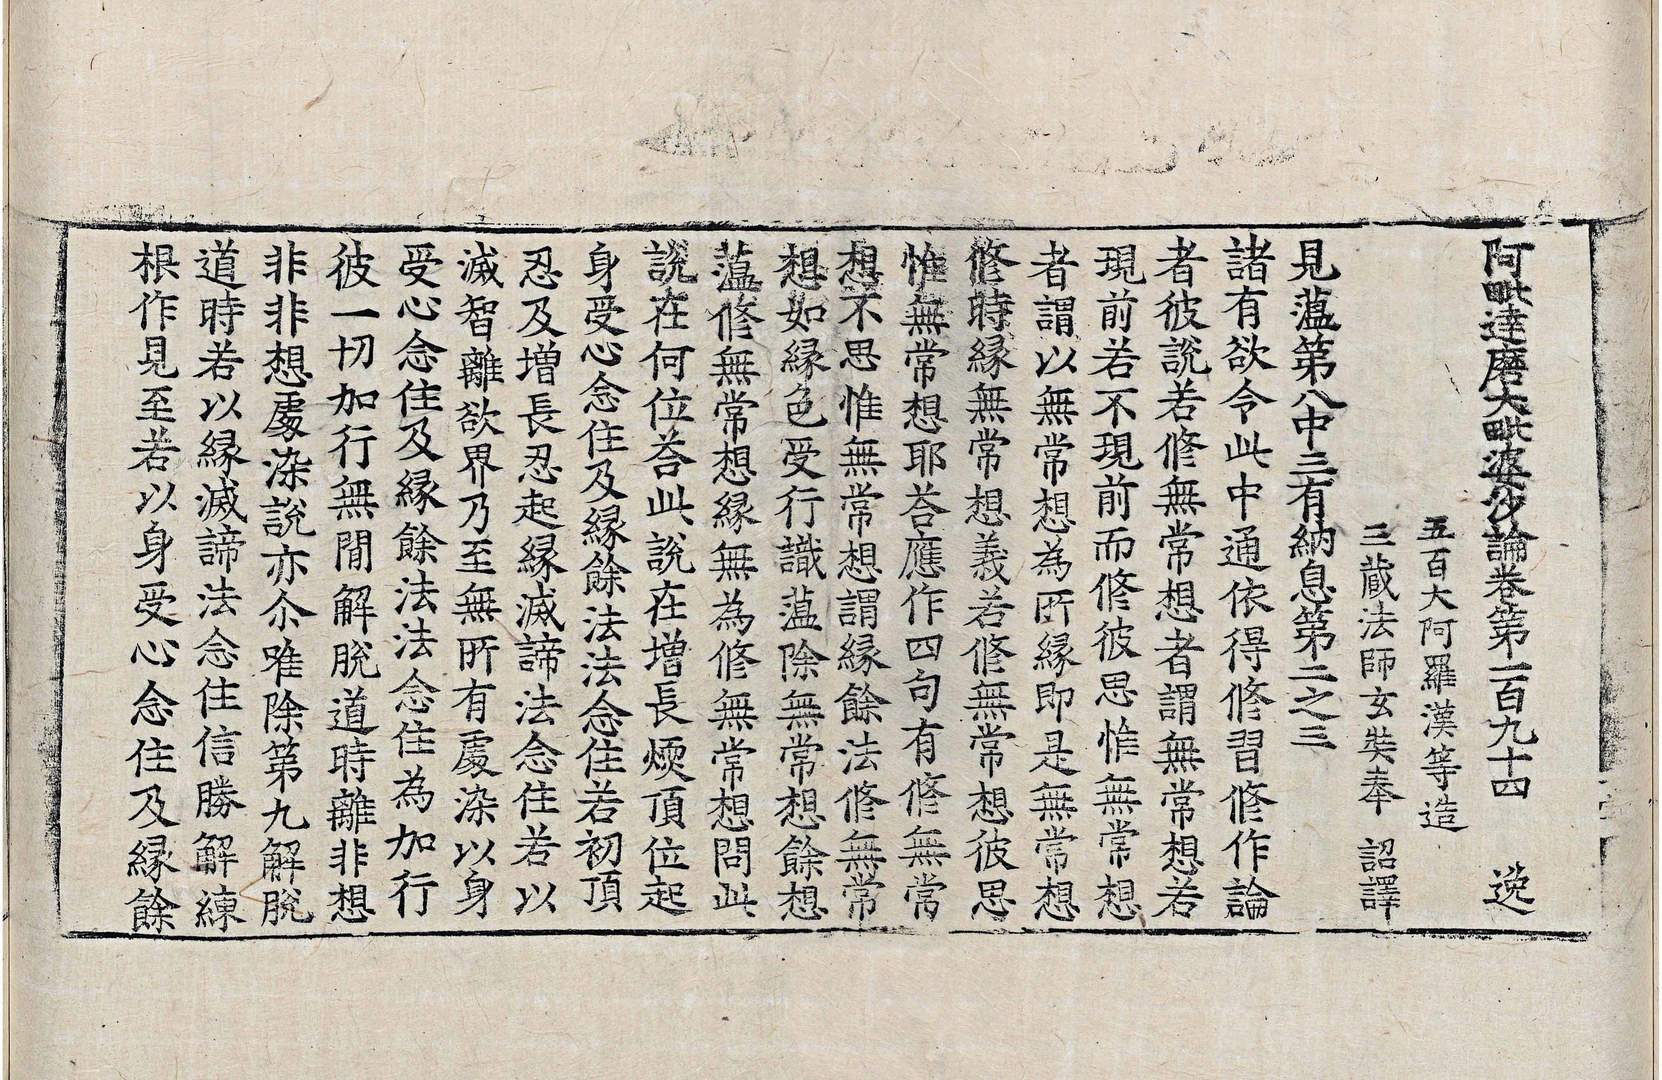 阿毗達磨大毗婆沙論卷第一百九十四　逸
五百大阿羅漢等造
三藏法師玄奘奉　詔譯
見蘊第八中三有納息第二之三
諸有欲令此中通依得修習修作論
者彼說若修無常想者謂無常想若
現前若不現前而修彼思惟無常想
者謂以無常想為所緣即是無常想
修時緣無常想義若修無常想彼思
惟無常想耶荅應作四句有修無常
想不思惟無常想謂緣餘法修無常
想如緣色受行識蘊除無常想餘想
蘊修無常想緣無為修無常想問此
說在何位荅此說在增長煗頂位起
身受心念住及緣餘法法念住若初頂
忍及增長忍起緣滅諦法念住若以
滅智離欲界乃至無所有處染以身
受心念住及緣餘法法念住為加行
彼一切加行無間解脫道時離非想
非非想處染說亦尒唯除第九解脫
道時若以緣滅諦法念住信勝解練
根作見至若以身受心念住及緣餘